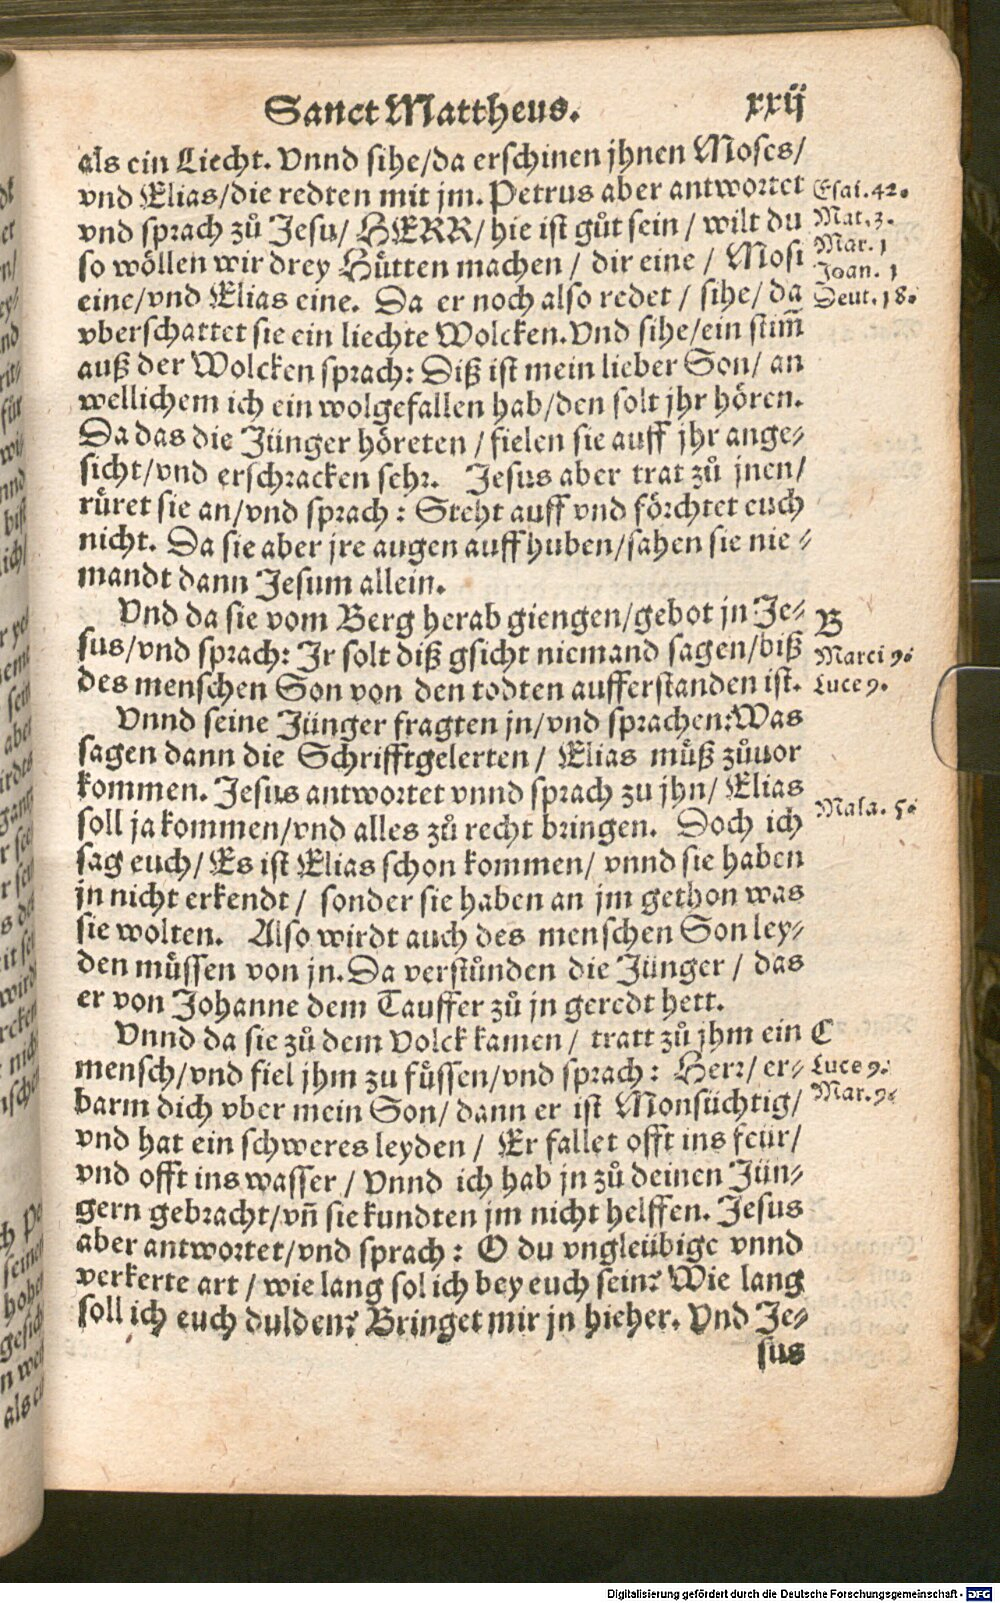 Sanct Mattheus. xxij
als ein Liecht. Vnnd sihe/da erschinen jhnen Moses/
vnd Elias/die redten mit jm. Petrus aber antwortet
vnd sprach zů Jesu/ HERR/ hie ist gůt sein / wilt du
so wöllen wir drey Hütten machen / dir eine / Mosi
eine/vnd Elias eine. Da er noch also redet / sihe/ da
vberschattet sie ein liechte Wolcken. Vnd sihe/ein stim̃
auß der Wolcken sprach: Diß ist mein lieber Son/ an
wellichem ich ein wolgefallen hab/den solt jhr hören.
Da das die Jünger höreten / fielen sie auff jhr ange-
sicht/vnd erschracken sehr. Jesus aber trat zů jnen/
rüret sie an/vnd sprach : Steht auff vnd förchtet euch
nicht. Da sie aber jre augen auff huben/sahen sie nie-
mandt dann Jesum allein.
Vnd da sie vom Berg herab giengen/gebot jn Je-
sus/vnd sprach: Jr solt diß gsicht niemand sagen/biß
des menschen Son von den todten aufferstanden ist.
Vnnd seine Jünger fragten jn/vnd sprachen: Was
sagen dann die Schrifftgelerten / Elias můß zůuor
kommen. Jesus antwortet vnnd sprach zu jhn/ Elias
soll ja kommen/vnd alles zů recht bringen. Doch ich
sag euch/ Es ist Elias schon kommen/ vnnd sie haben
jn nicht erkendt / sonder sie haben an jm gethon was
sie wolten. Also wirdt auch des menschen Son ley-
den müssen von jn. Da verstůnden die Jünger / das
er von Johanne dem Tauffer zů jn geredt hett.
Vnnd da sie zů dem Volck kamen / tratt zů jhm ein
mensch/vnd fiel jhm zu füssen/vnd sprach : Herr/ er-
barm dich vber mein Son/ dann er ist Monsüchtig/
vnd hat ein schweres leyden / Er fallet offt ins feür/
vnd offt ins wasser / Vnnd ich hab jn zů deinen Jün-
gern gebracht/vñ sie kundten jm nicht helffen. Jesus
aber antwortet/vnd sprach : O du vngleübige vnnd
verkerte art / wie lang sol ich bey euch sein? Wie lang
soll ich euch dulden? Bringet mir jn hieher. Vnd Je-
sus
Esai. 42.
Mat. 3.
Mar. 1
Joan. 1
Deut. 18.
B
Marci 9.
Luce 9.
Mala. 5.
C
Luce 9.
Mar. 9.
Digitalisierung gefördert durch die Deutsche Forschungsgemeinschaft - DFG